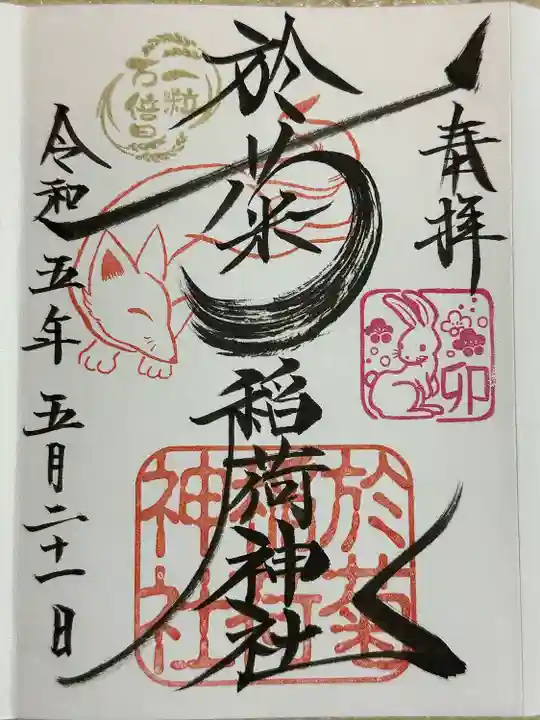 奉拝
卯
於菊稲荷神社
於菊稲荷神社
一粒
万倍日
令和五年五月二十一日